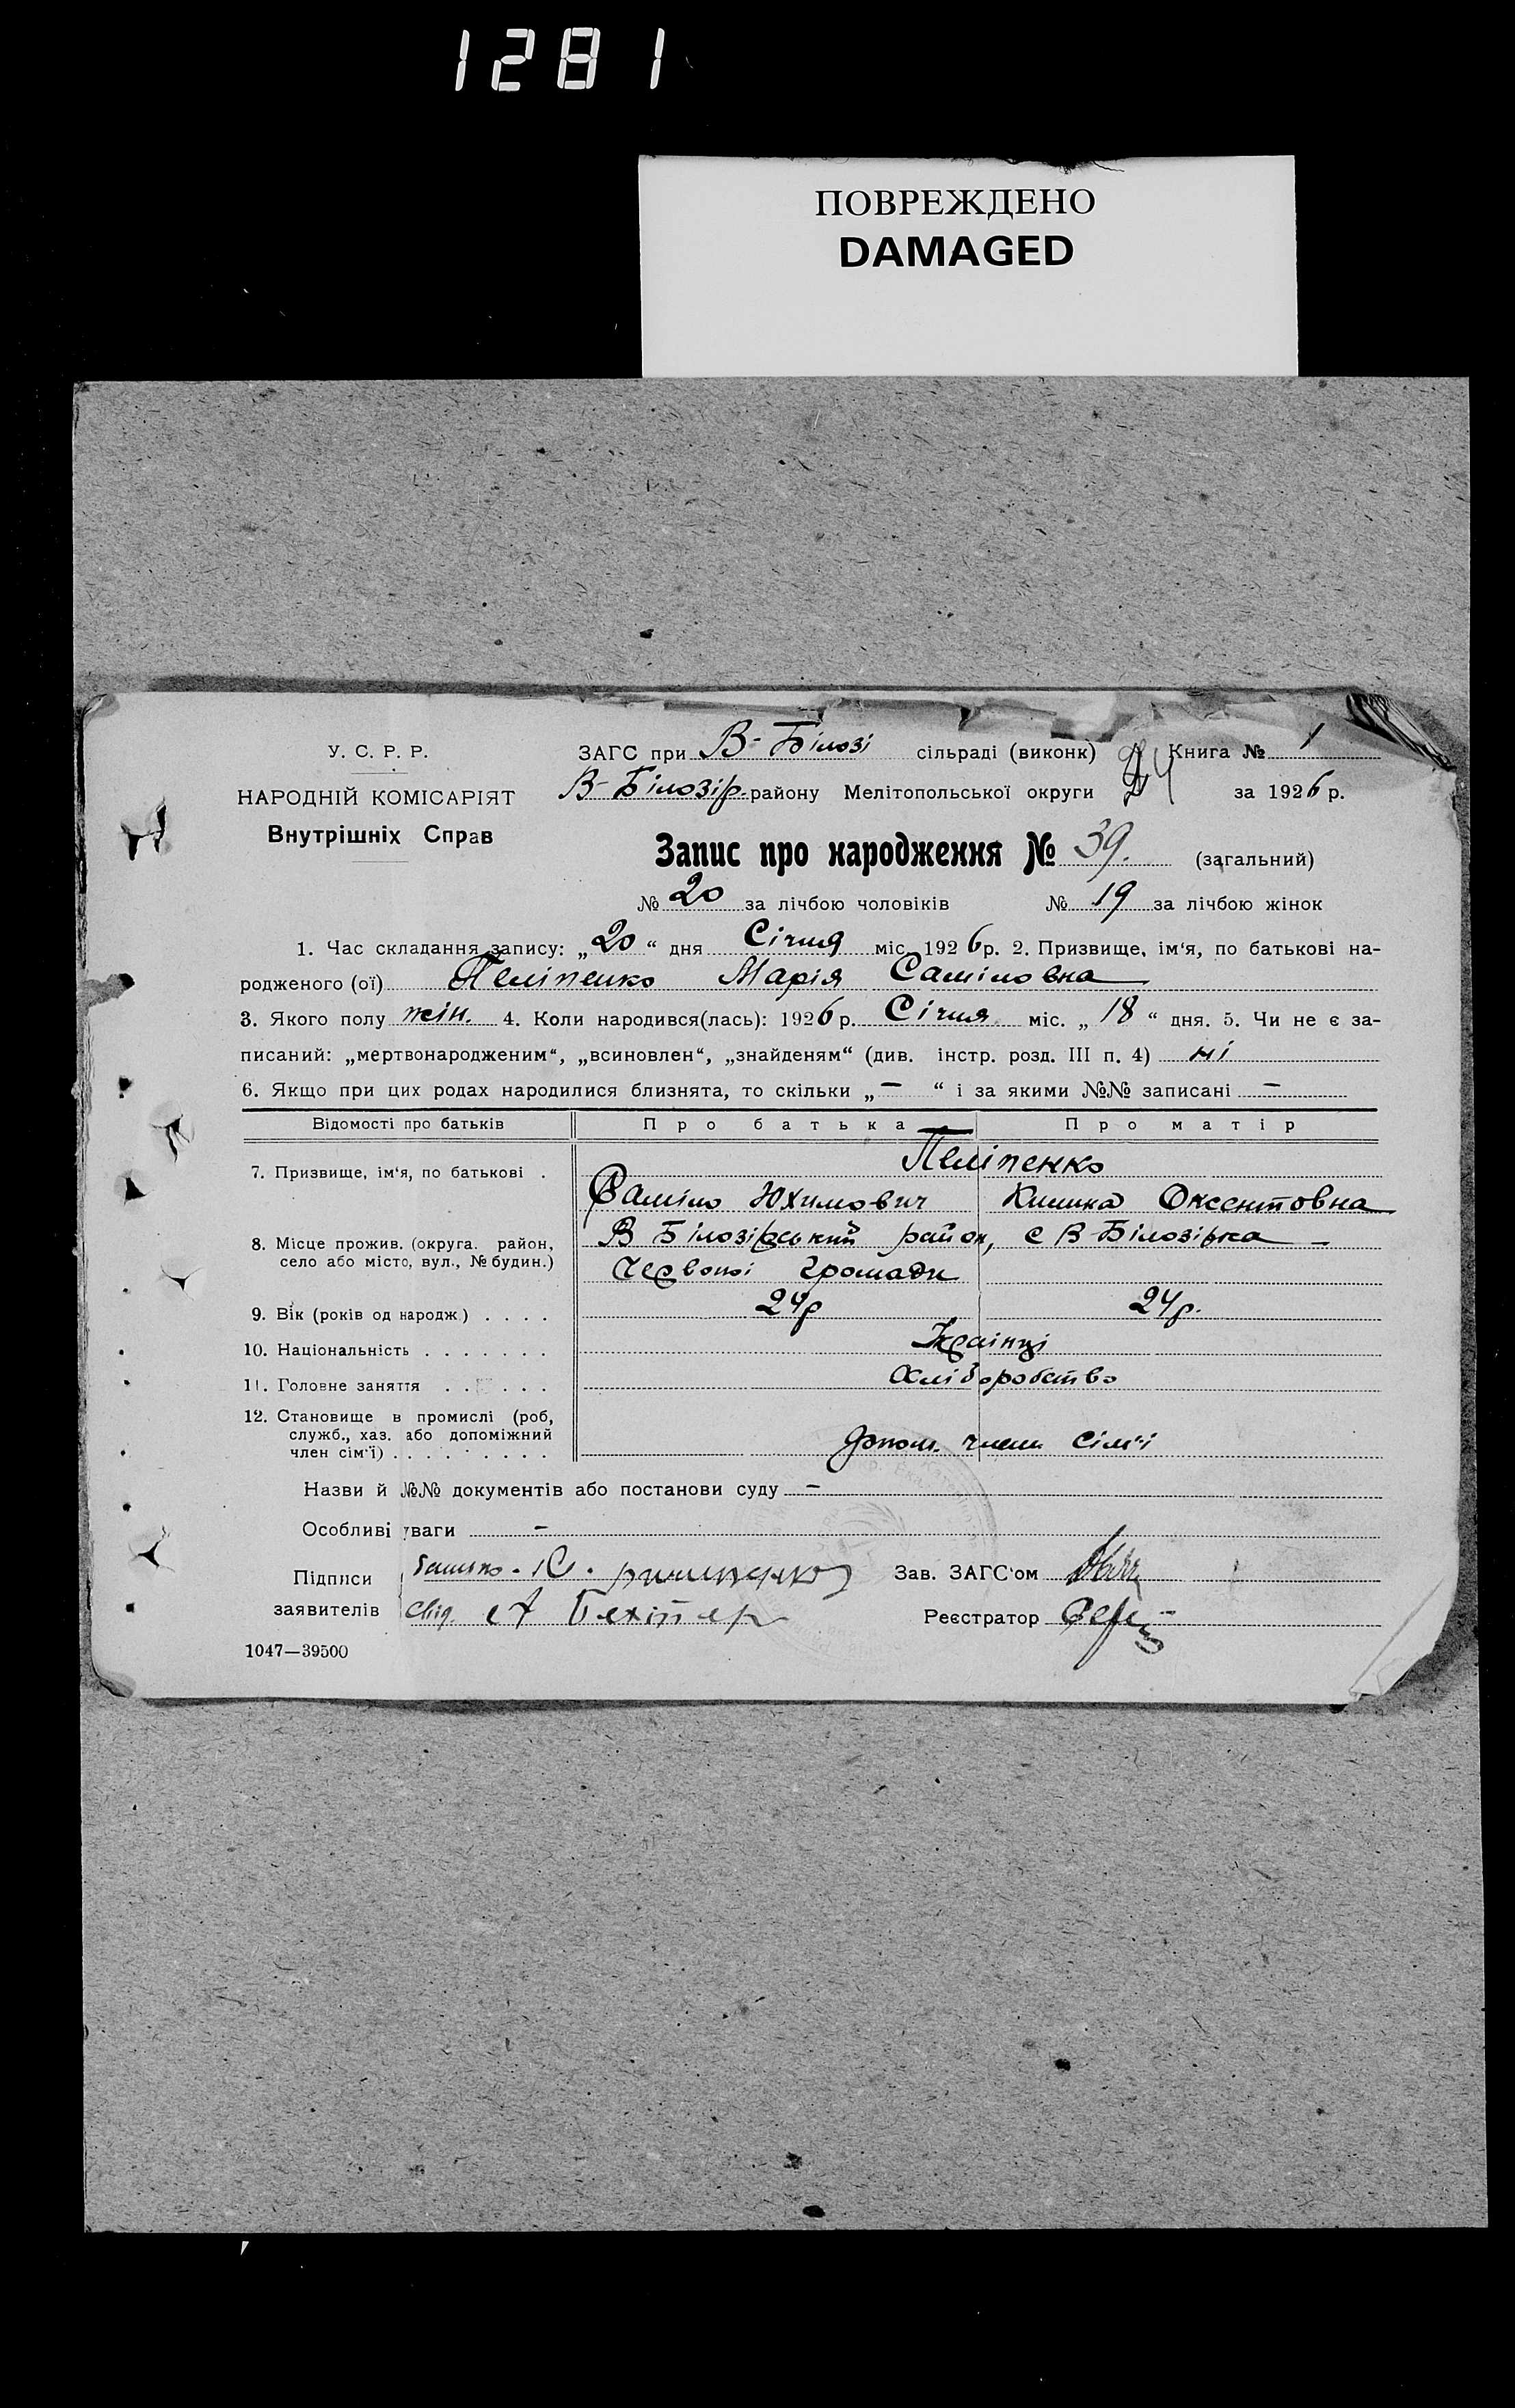 1281
ПОВРЕЖДЕНО
DAMAGED
У. С. Р. Р.
НАРОДНІЙ КОМІСАРІЯТ
Внутрішніх Справ
ЗАГС при В-Білозі сільраді (виконк) Книга № 1
В-Білозір. району Мелітопольської округи за 1926 р.
Запис про народження № 39. (загальний)
№ 20 за лічбою чоловіків № 19 за лічбою жінок
1. Час складання запису: „20“ дня Січня міс. 1926 р. 2. Призвище, ім‘я, по батькові на-
родженого (ої) Пеліпенко Марія Саміловна
3. Якого полу жін. 4. Коли народився(лась): 1926 р. Січня міс. „18“ дня. 5. Чи не є за-
писаний: „мертвонародженим“, „всиновлен“, „знайденям“ (див. інстр. розд. III п. 4) ні
6. Якщо при цих родах народилися близнята, то скільки „—“ і за якими №№ записані —
Відомості про батьків Про батька Про матір
7. Призвище, ім‘я, по батькові . Пеліпенко
Саміло Юхимович Килина Оксентовна
8. Місце прожив. (округа. район, село або місто, вул., № будин.) В Білозірський район, с В-Білозірка —
Червоної Громади
9. Вік (років од народж) . . . . 24р 24р.
10. Національність . . . . . . . Українці
11. Головне заняття . . . . . Хліборобство
12. Становище в промислі (роб,
служб., хаз. або допоміжний
член сім‘ї) . . . . . . . . . допом. члени сім'ї
Назви й №№ документів або постанови суду —
Особливі уваги —
Підписи
заявителів
Батько - Ю.
Свід. А Бехтер
Зав. ЗАГС‘ом
Реєстратор
1047—39500